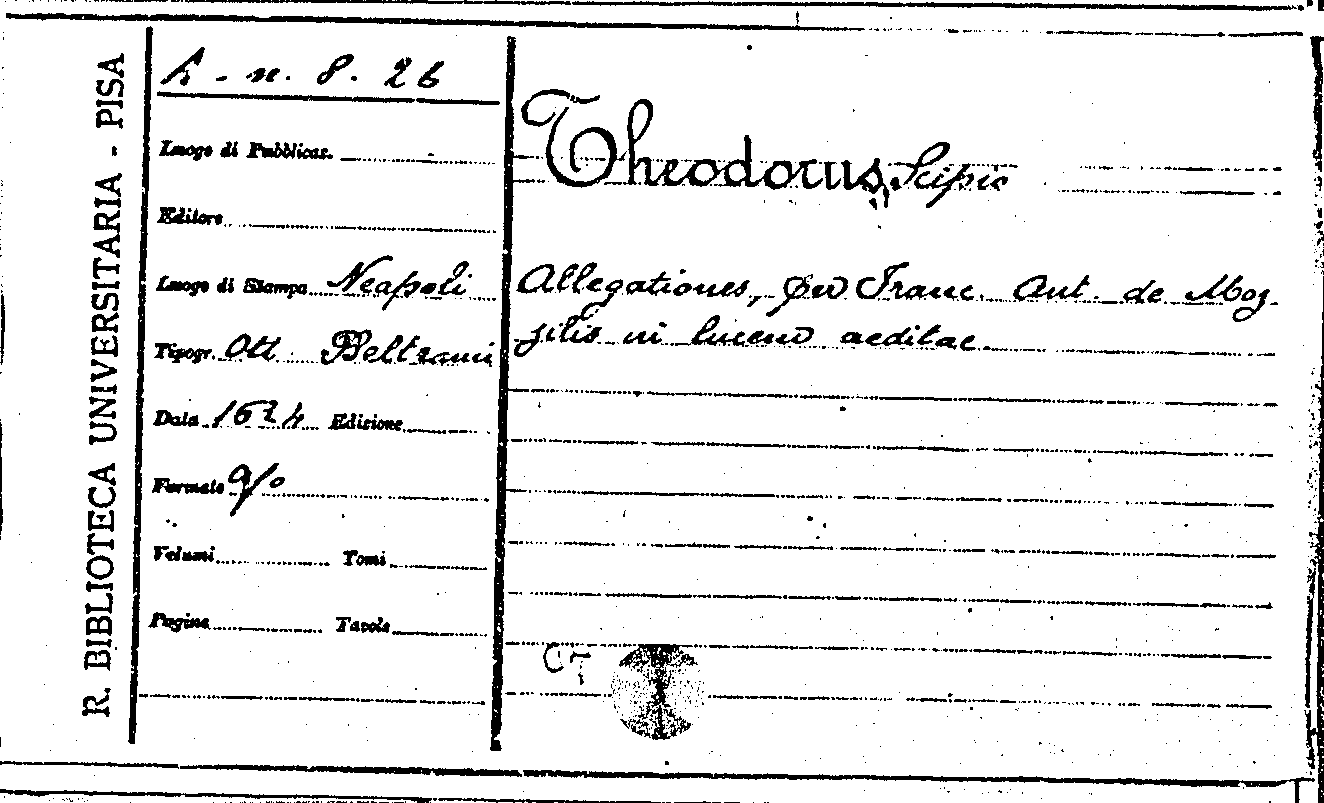 R. BIBLIOTECA UNIVERSITARIA - PISA
A - n. 8. 26
Luogo di Pubblicaz.
Editore
Luogo di Stampa Neapoli
Tipogr. Ott. Beltrami
Data 1624 Edizione
Formato
Volumi Tomi
Pagine Tavole
Theodorus, Scipio
Allegationes, per Franc. Ant. de Moz
zilis in lucem aeditae.
CT